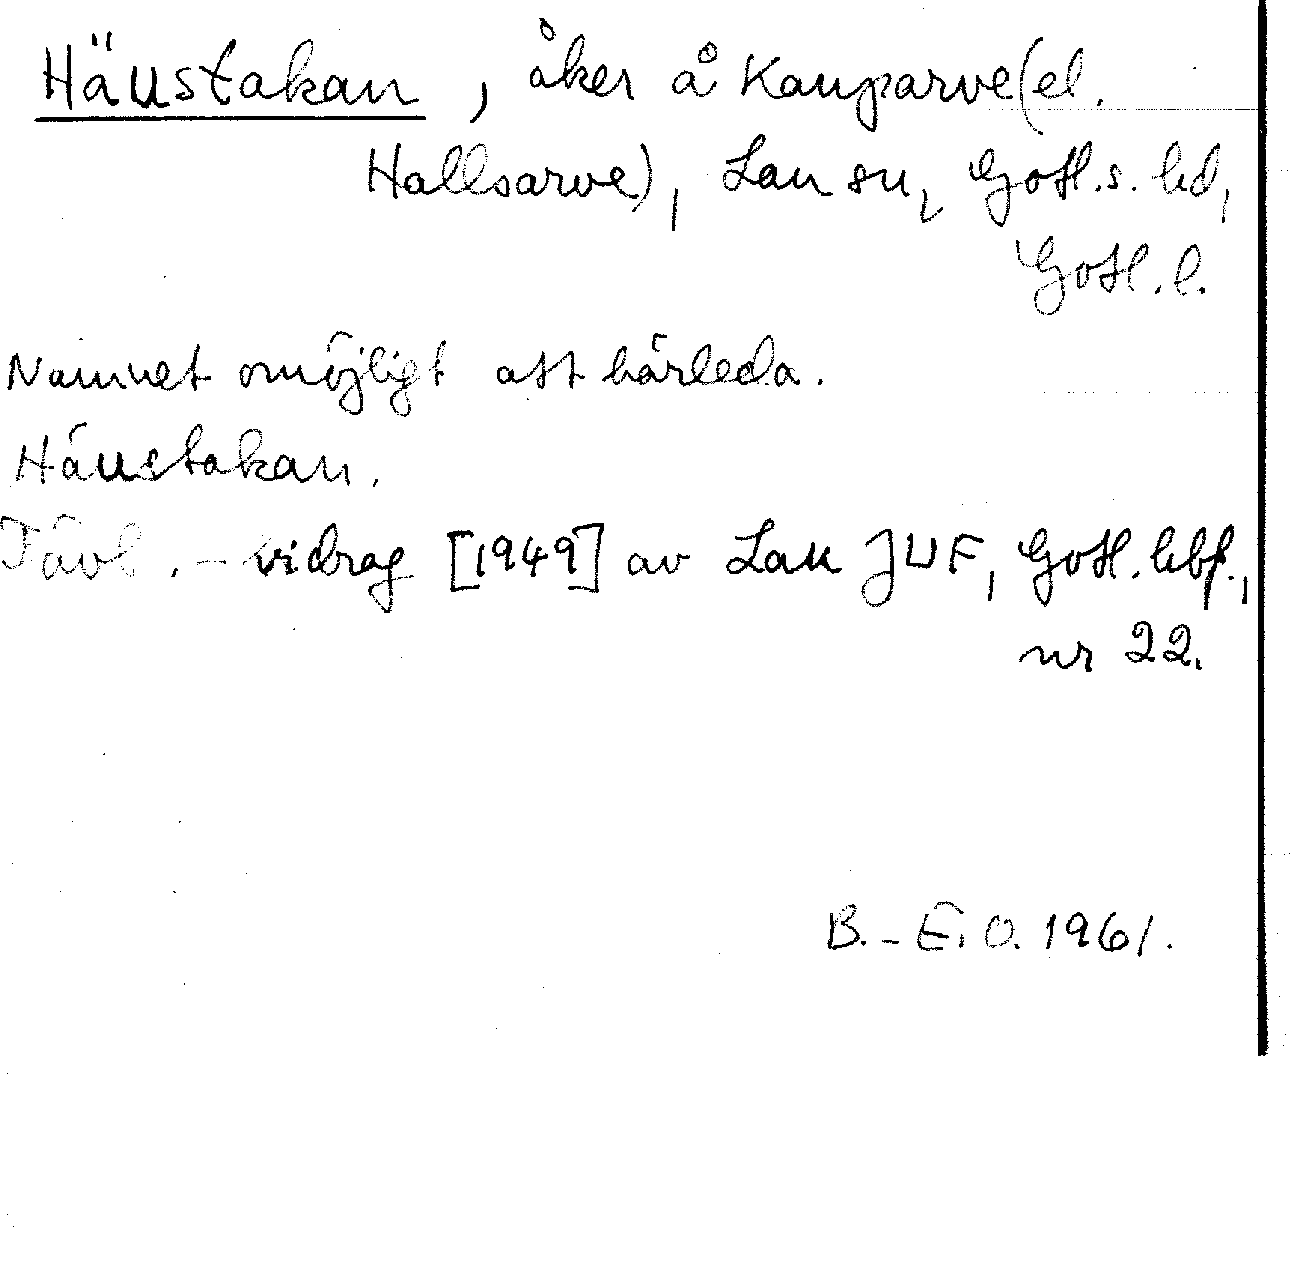 Häustakan, åker å Kauparve (el.
Hallsarve), Lau sn, Gotl. s. hd,
Gotl. l.
Namnet omöjligt att härleda.
Häustakan.
Tävl. - vidrag [1949] av Lau JUF, Gotl. hbf.,
nr 22.
B.-E. O. 1961.